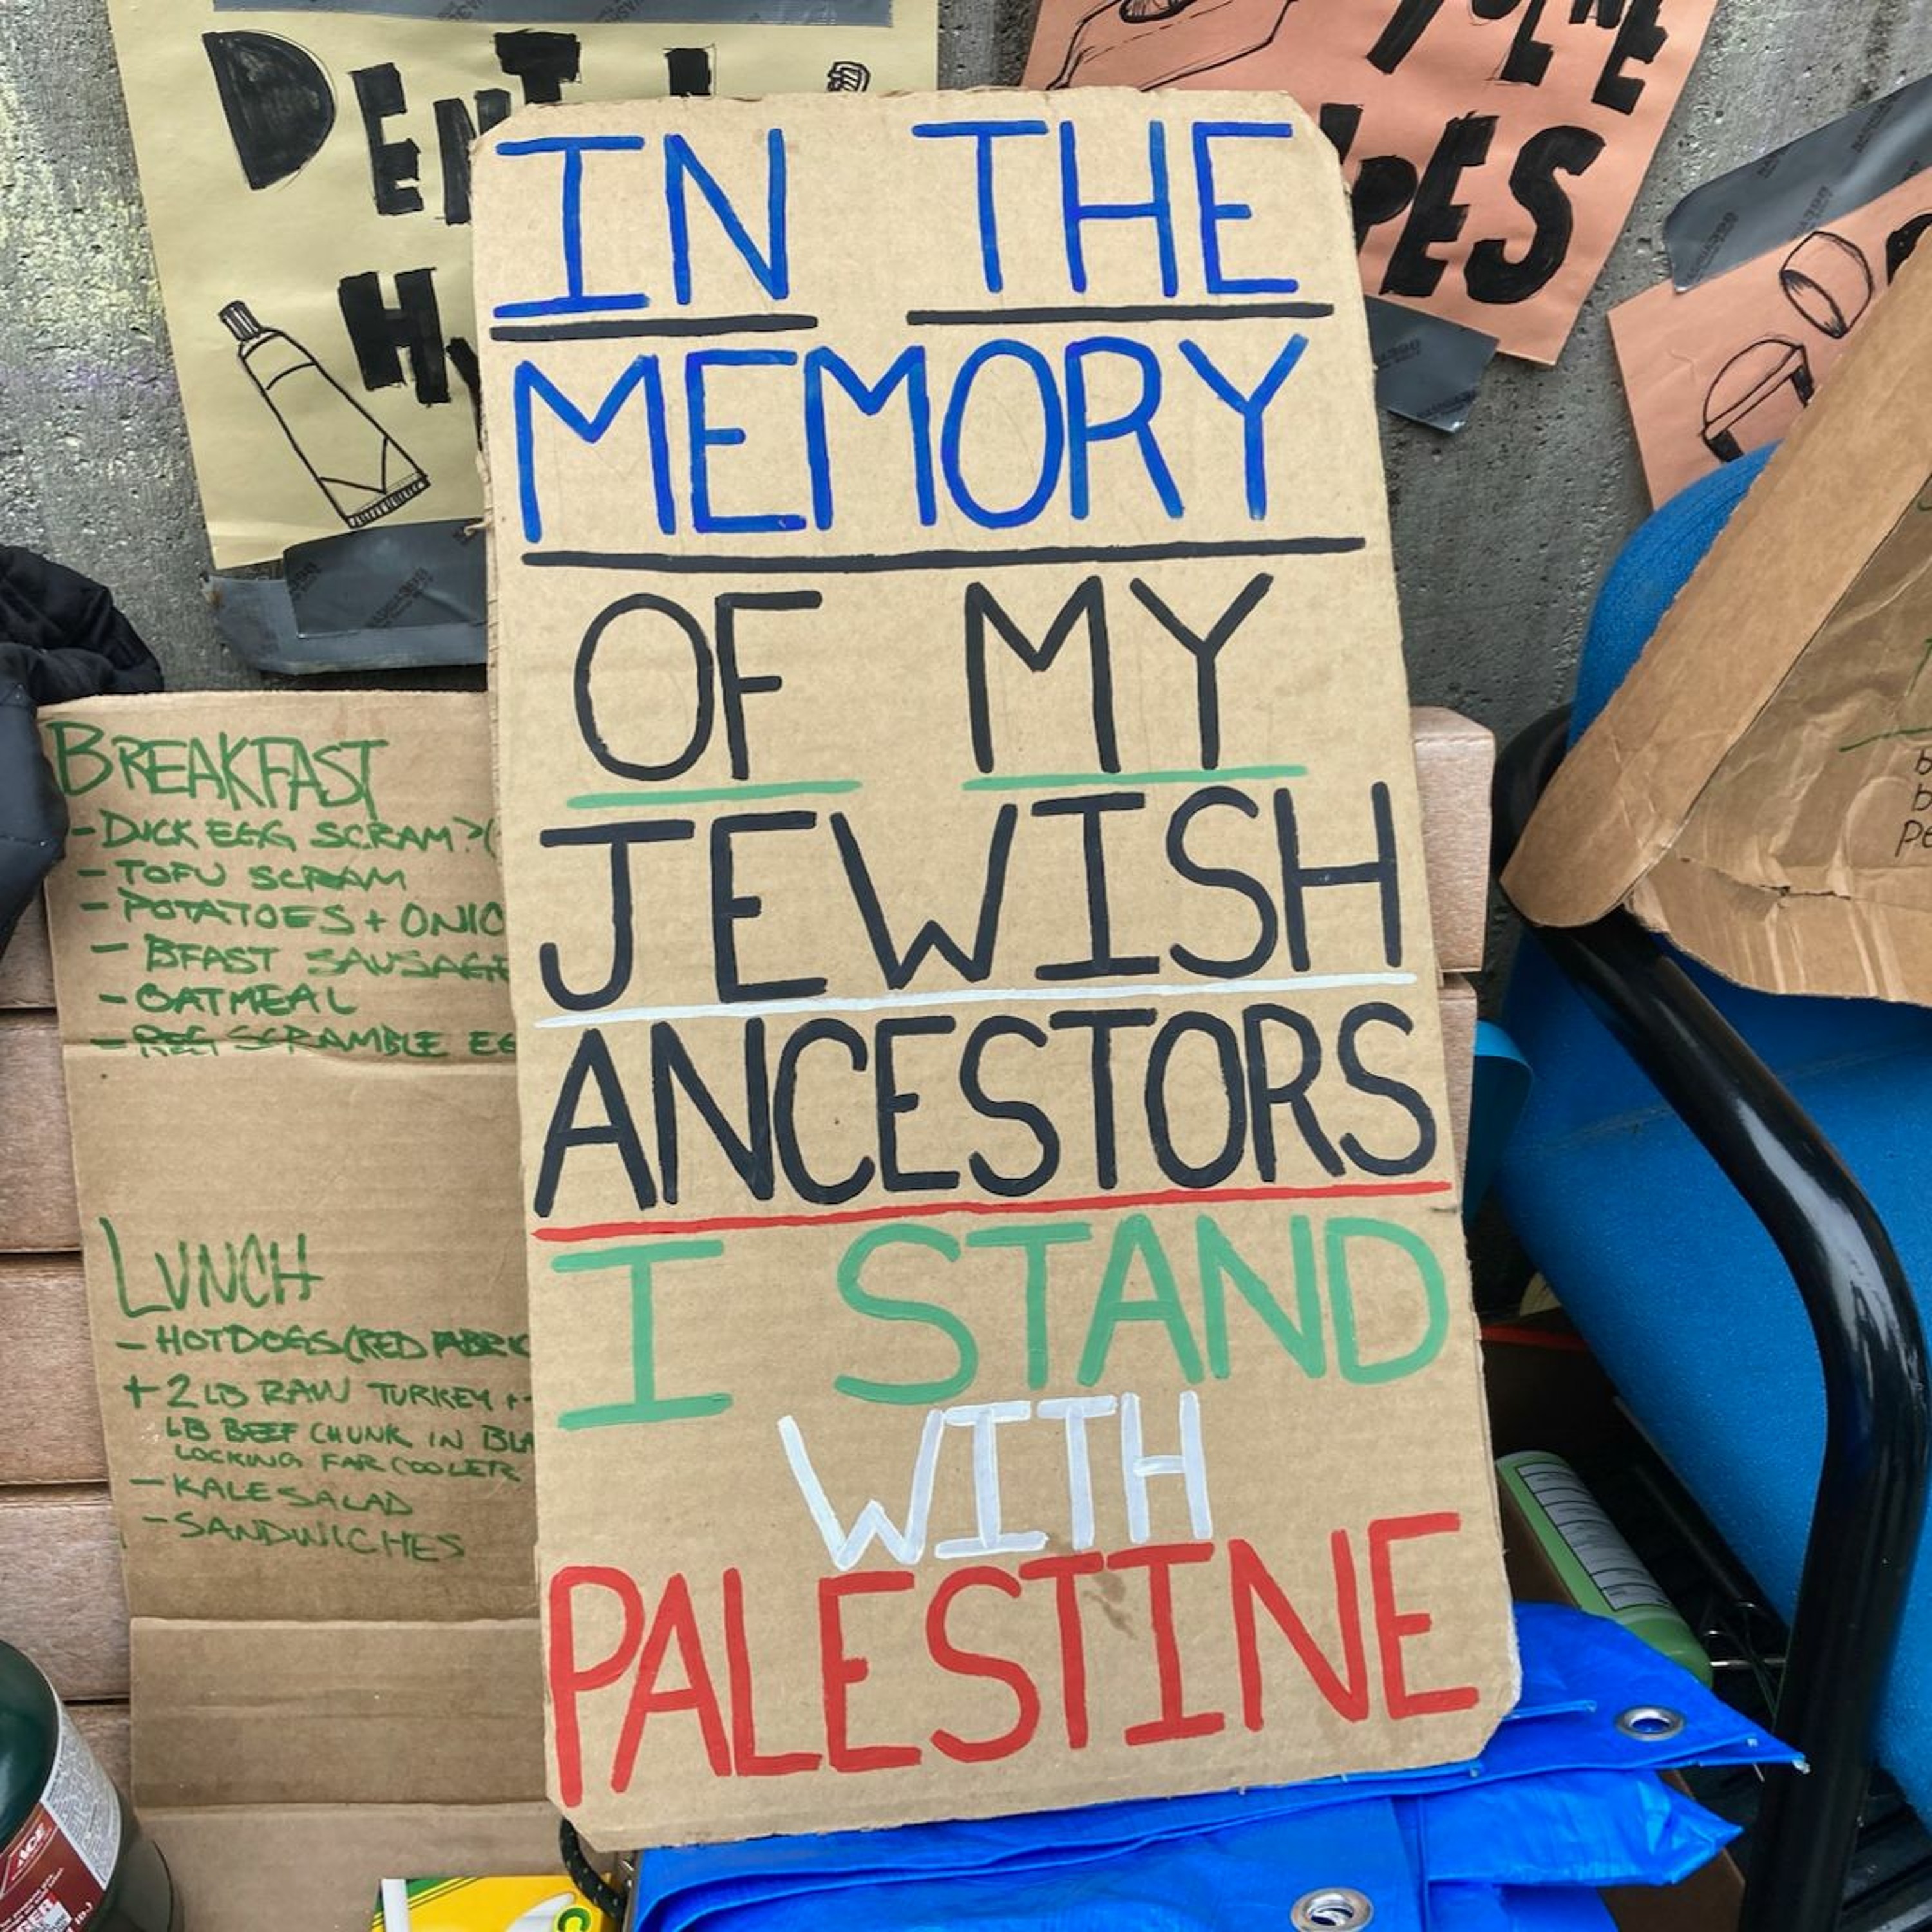 IN THE
MEMORY
OF MY
JEWISH
ANCESTORS
I STAND
WITH
PALESTINE
BREAKFAST
-DUCK EGG SCRAM?(
-TOFU SCRAM
-POTATOES + ONIO
- BFAST SAUSAGE
-OATMEAL
-REG SCRAMBLE EG
LUNCH
-HOTDOGS(RED FABRIC
+2 LB RAW TURKEY +
LB BEEF CHUNK IN BLA
LOCKING FAR COOLER
-KALE SALAD
-SANDWICHES
ACE